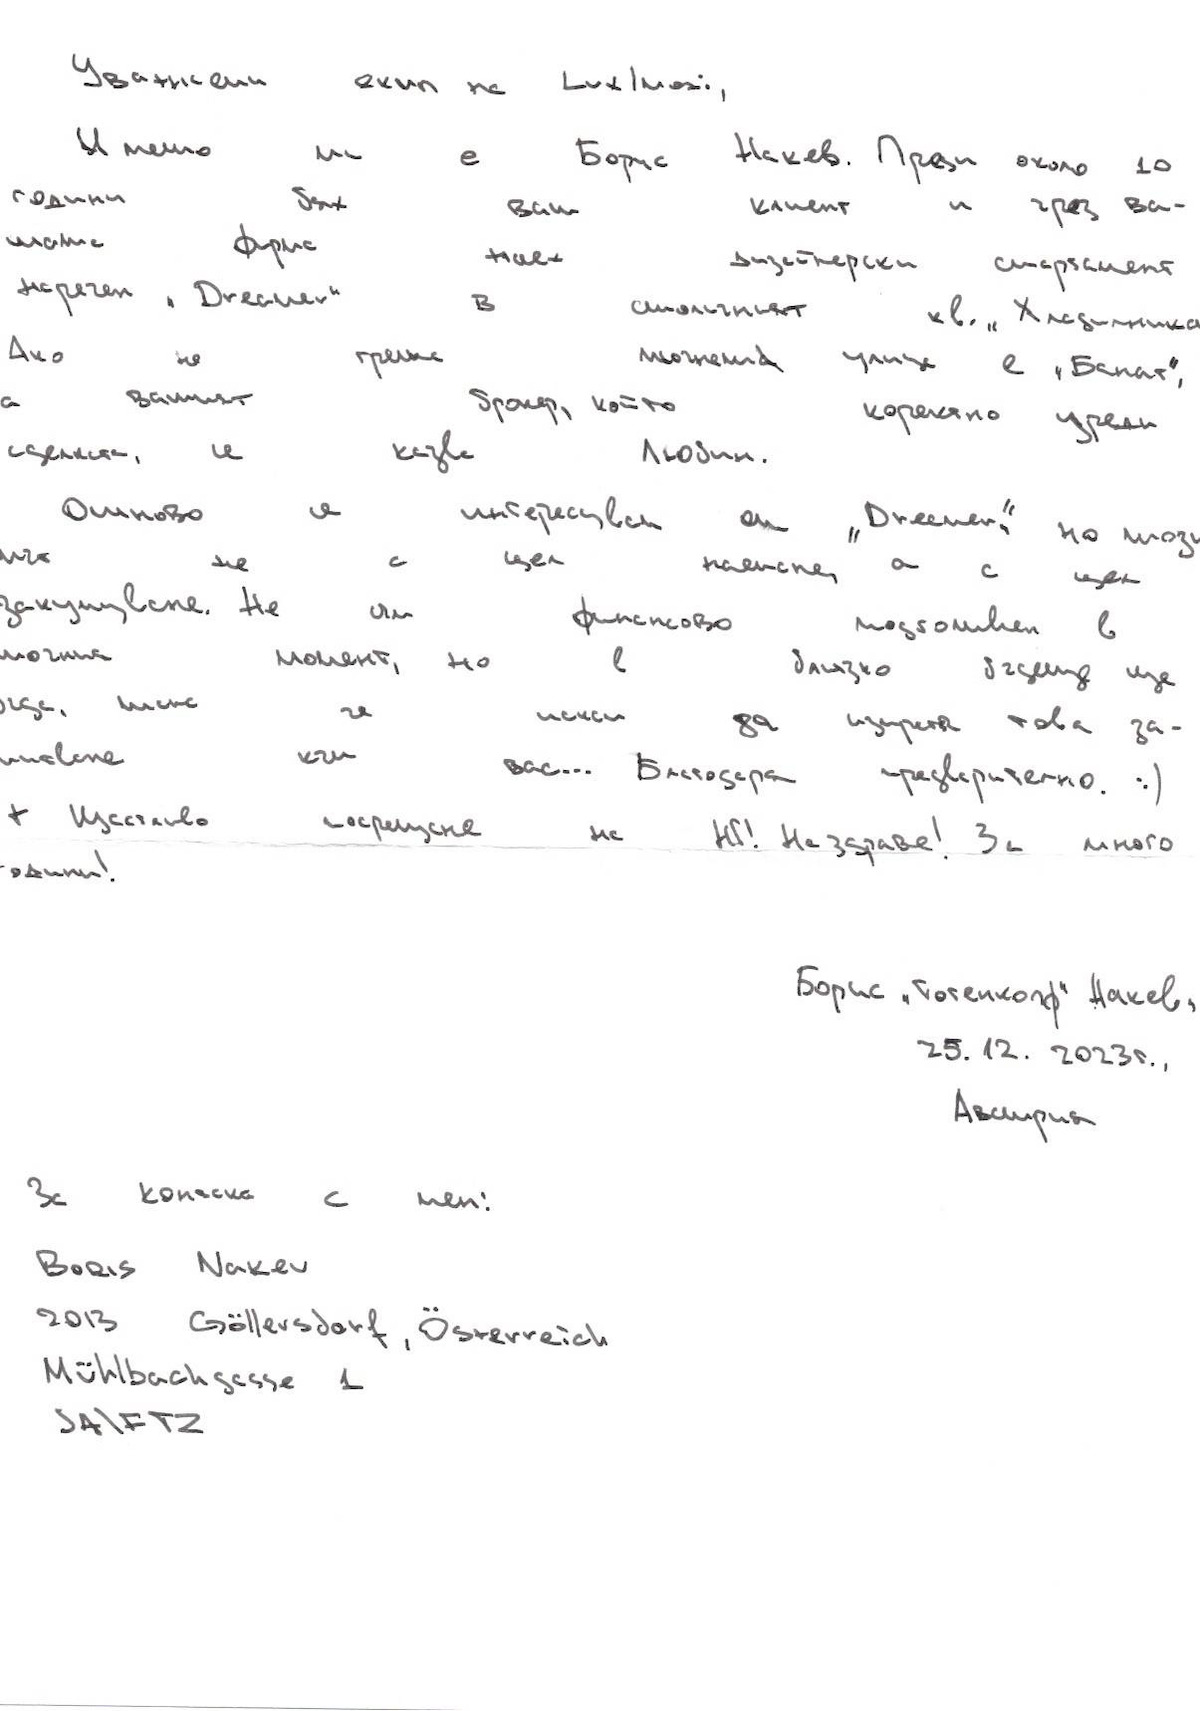 Уважаеми екип на LuxImmo.,
Името ми е Борис Накев. Преди около 10
години бях ваш клиент и чрез ва-
шата фирма наех дизайнерски апартамент
наречен „Dreamer“ в столичният кв. „Хладилника
Ако не греша точната улица е „Банат“,
а вашият брокер, който коректно уреди
сделката, се казва Любин.
Отново се интересувам от „Dreamer“, но този
път не с цел наемане, а с цел
закупуване. Не съм финансово подготвен в
момента момент, но в близко бъдеще ще
бъда, така че искам да изпратя това за-
питване към вас... Благодаря предварително. :)
+ Щастливо посрещане на НГ! Наздраве! За много
години!
Борис „Тотенкопф“ Накев,
25.12.2023г.,
Австрия
За контакт с мен:
Boris Nakev
2013 Göllersdorf, Österreich
Mühlbachgasse 1
JA\FTZ